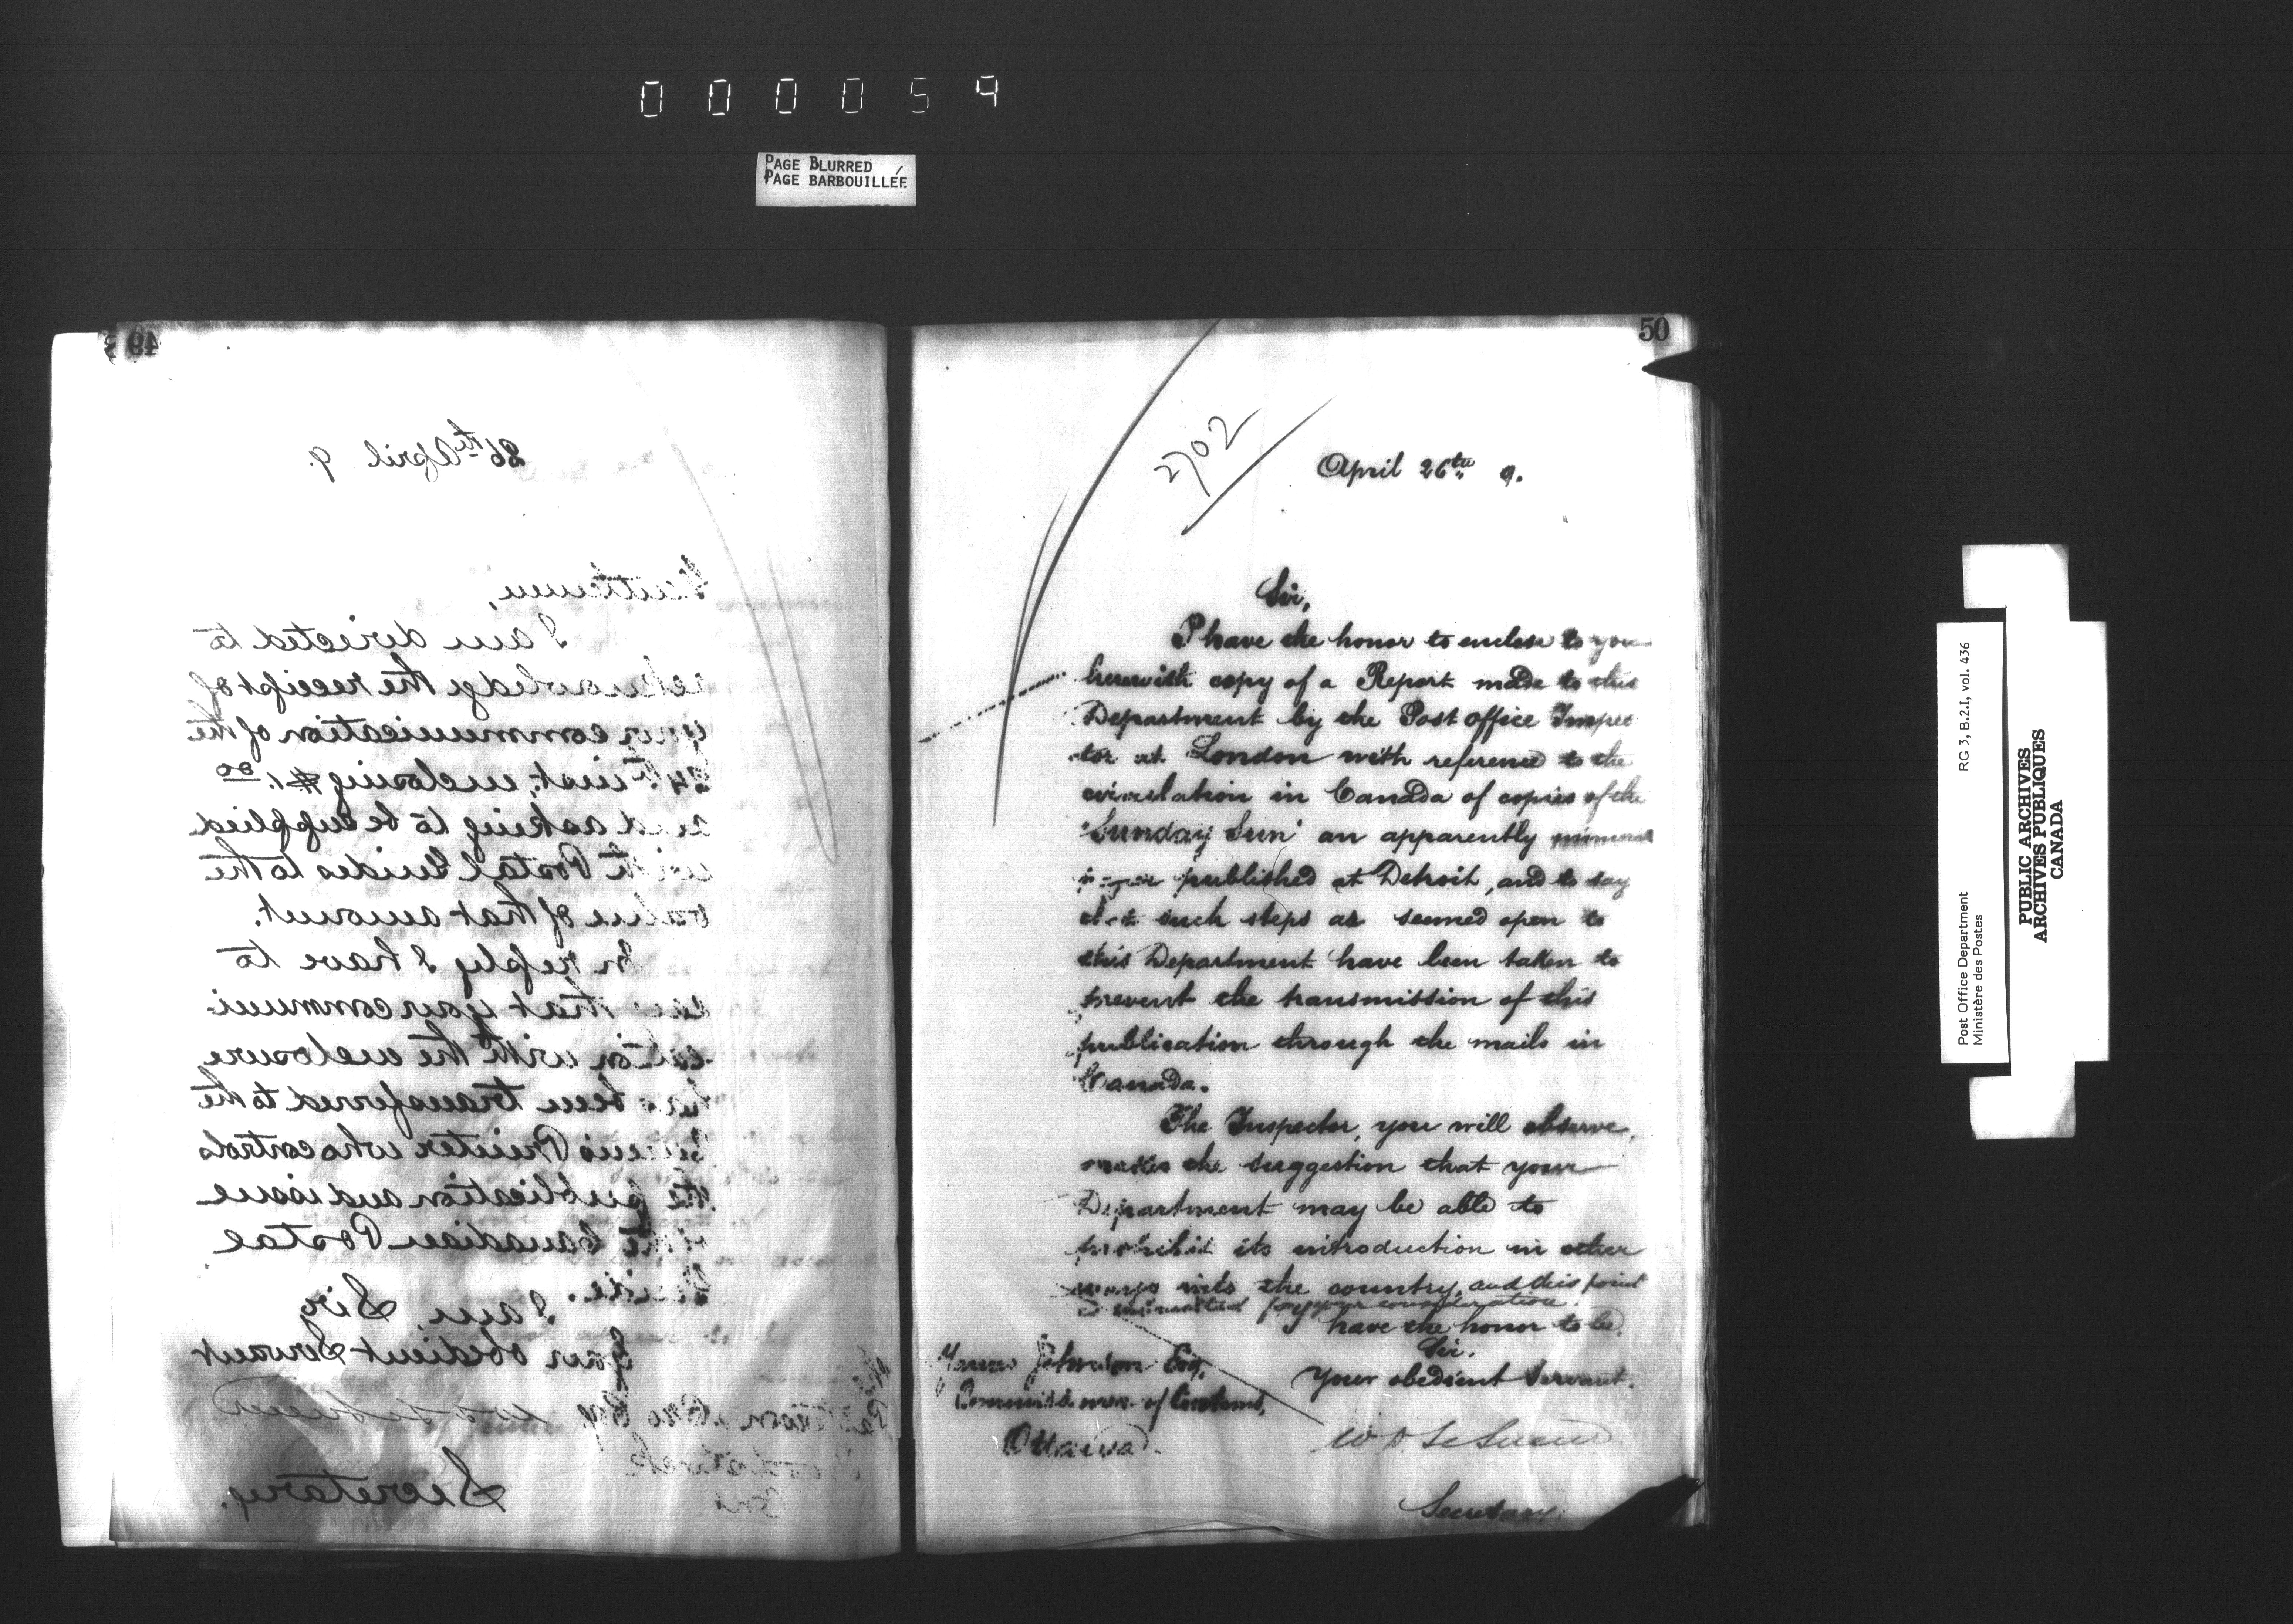 000059
PAGE BLURRED
PAGE BARBOUILLÉE
49
26th April 9.
Gentlemen,
I am directed to
acknowledge the receipt of
your communication of the
24th inst., enclosing $1.00
and asking to be supplied
with Postal Guides to the
value of that amount.
In reply I have to
say that your communi-
cation with the enclosure
has been transferred to the
Queen's Printer who controls
the publication and issue
of the Canadian Postal
Guide.
I am, Sir,
Your obedient Servant
W D LeSueur
Secretary.
50
2702
April 26th 9.
Sir,
I have the honor to enclose to you
herewith copy of a Report made to this
Department by the Post Office Inspec
tor at London with reference to the
circulation in Canada of copies of the
"Sunday Sun" an apparently immoral
paper published at Detroit, and to say
that such steps as seemed open to
this Department have been taken to
prevent the transmission of this
publication through the mails in
Canada.
The Inspector, you will observe,
makes the suggestion that your
Department may be able to
prohibit its introduction in other
ways into the country, and this point
is submitted for your consideration.
I have the honor to be,
Sir,
Your obedient Servant.
Johnson Esq,
Commissioner of Customs,
Ottawa.
W D LeSueur
Secretary.
Post Office Department
Ministère des Postes
RG 3, B.2.I, vol. 436
PUBLIC ARCHIVES
ARCHIVES PUBLIQUES
CANADA